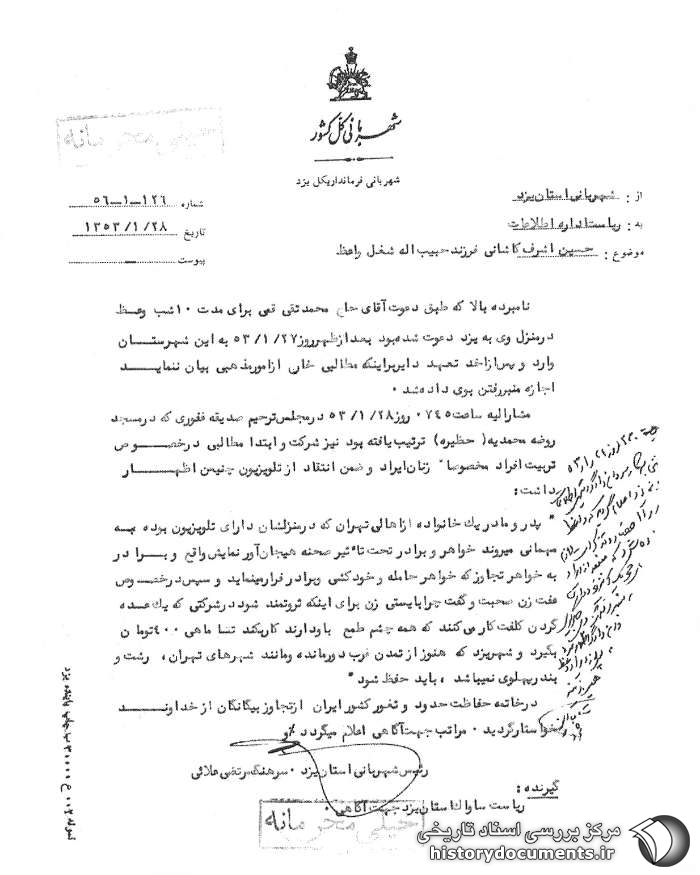 شهربانی کل کشور
شهربانی فرمانداریکل یزد
از : شهربانی استان یزد
شماره ۱۲۶-۱-۵۶
به : ریاست اداره اطلاعات
تاریخ ۱۳۵۳/۱/۲۸
موضوع : حسین اشرف کاشانی فرزند حبیب اله شغل واعظ
پیوست
نامبرده بالا که طبق دعوت آقای حاج محمدتقی قمی برای مدت ۱۰ شب وعظ
درمنزل وی به یزد دعوت شده بود بعد ازظهر روز ۵۳/۱/۲۷ به این شهرستان
وارد و پس از اخذ تعهد دایر براینکه مطالبی خارج از امور مذهبی بیان ننماید
اجازه منبررفتن بوی داده شد .
مشارالیه ساعت ۰۷۴۵ روز ۵۳/۱/۲۸ درمجلس ترحیم صدیقه غفوری که درمسجد
روضه محمدیه ( حظیره ) ترتیب یافته بود نیز شرکت و ابتدا مطالبی درخصوص
تربیت افراد مخصوصاً زنان ایراد و ضمن انتقاد از تلویزیون چنین اظهار
داشت :
" پدر و مادر یک خانواده ازاهالی تهران که درمنزلشان دارای تلویزیون بوده به
مهمانی میروند خواهر و برادر تحت تأثیر صحنه هیجان آور نمایش واقع و برادر
به خواهر تجاوز که خواهر حامله و خودکشی وبرادر فرار مینماید و سپس درخصوص
عفت زن صحبت و گفت چرا بایستی زن برای اینکه ثروتمند شود درشرکتی که یک عده
گردن کلفت کار می کنند که همه چشم طمع باو دارند کار بکند تا ماهی ۴۰۰ تومان
بگیرد و شهر یزد که هنوز از تمدن غرب دور مانده ومانند شهرهای تهران ، رشت و
بندر پهلوی نمیباشد ، باید حفظ شود "
درخاتمه حفاظت حدود و ثغور کشور ایران ازتجاوز بیگانگان از خداوند
خواستار گردید . مراتب جهت آگاهی اعلام میگردد /و
رئیس شهربانی استان یزد . سرهنگ مرتضی علائی
گیرنده :
ریاست ساواک استان یزد جهت آگاهی .
خیلی محرمانه
مرکز بررسی اسناد تاریخی
historydocuments.ir